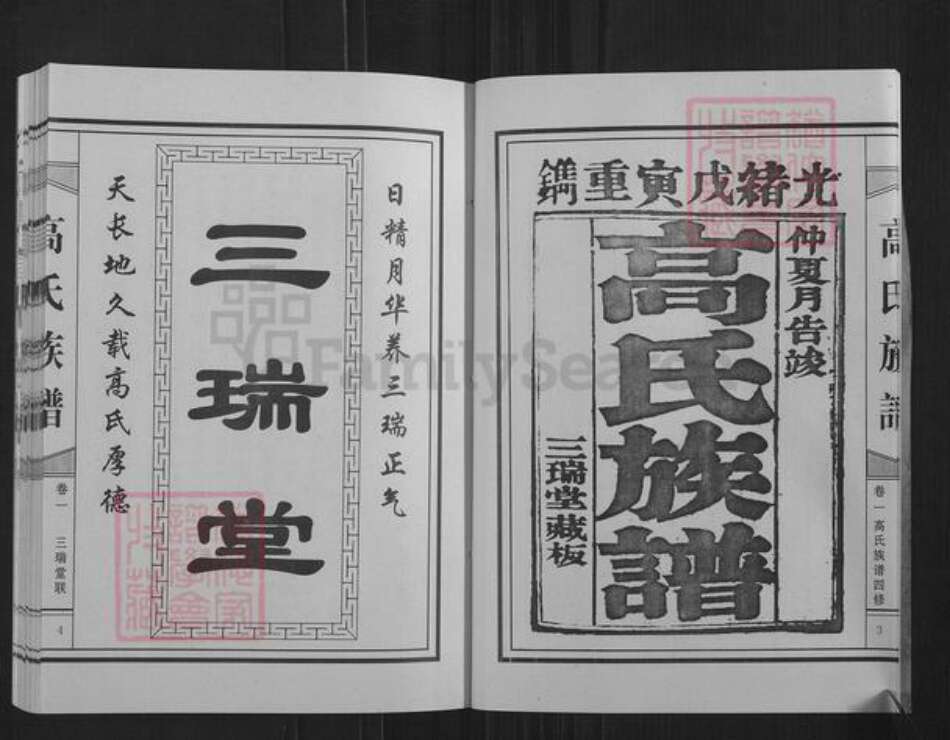 光緒戊寅重鐫
仲夏月告竣
高氏族譜
三瑞堂藏板
卷一 高氏族谱四修
3
日精月华养三瑞正气
三瑞堂
天长地久载高氏厚德
高氏族谱
卷一 三瑞堂联
4
FamilySearch